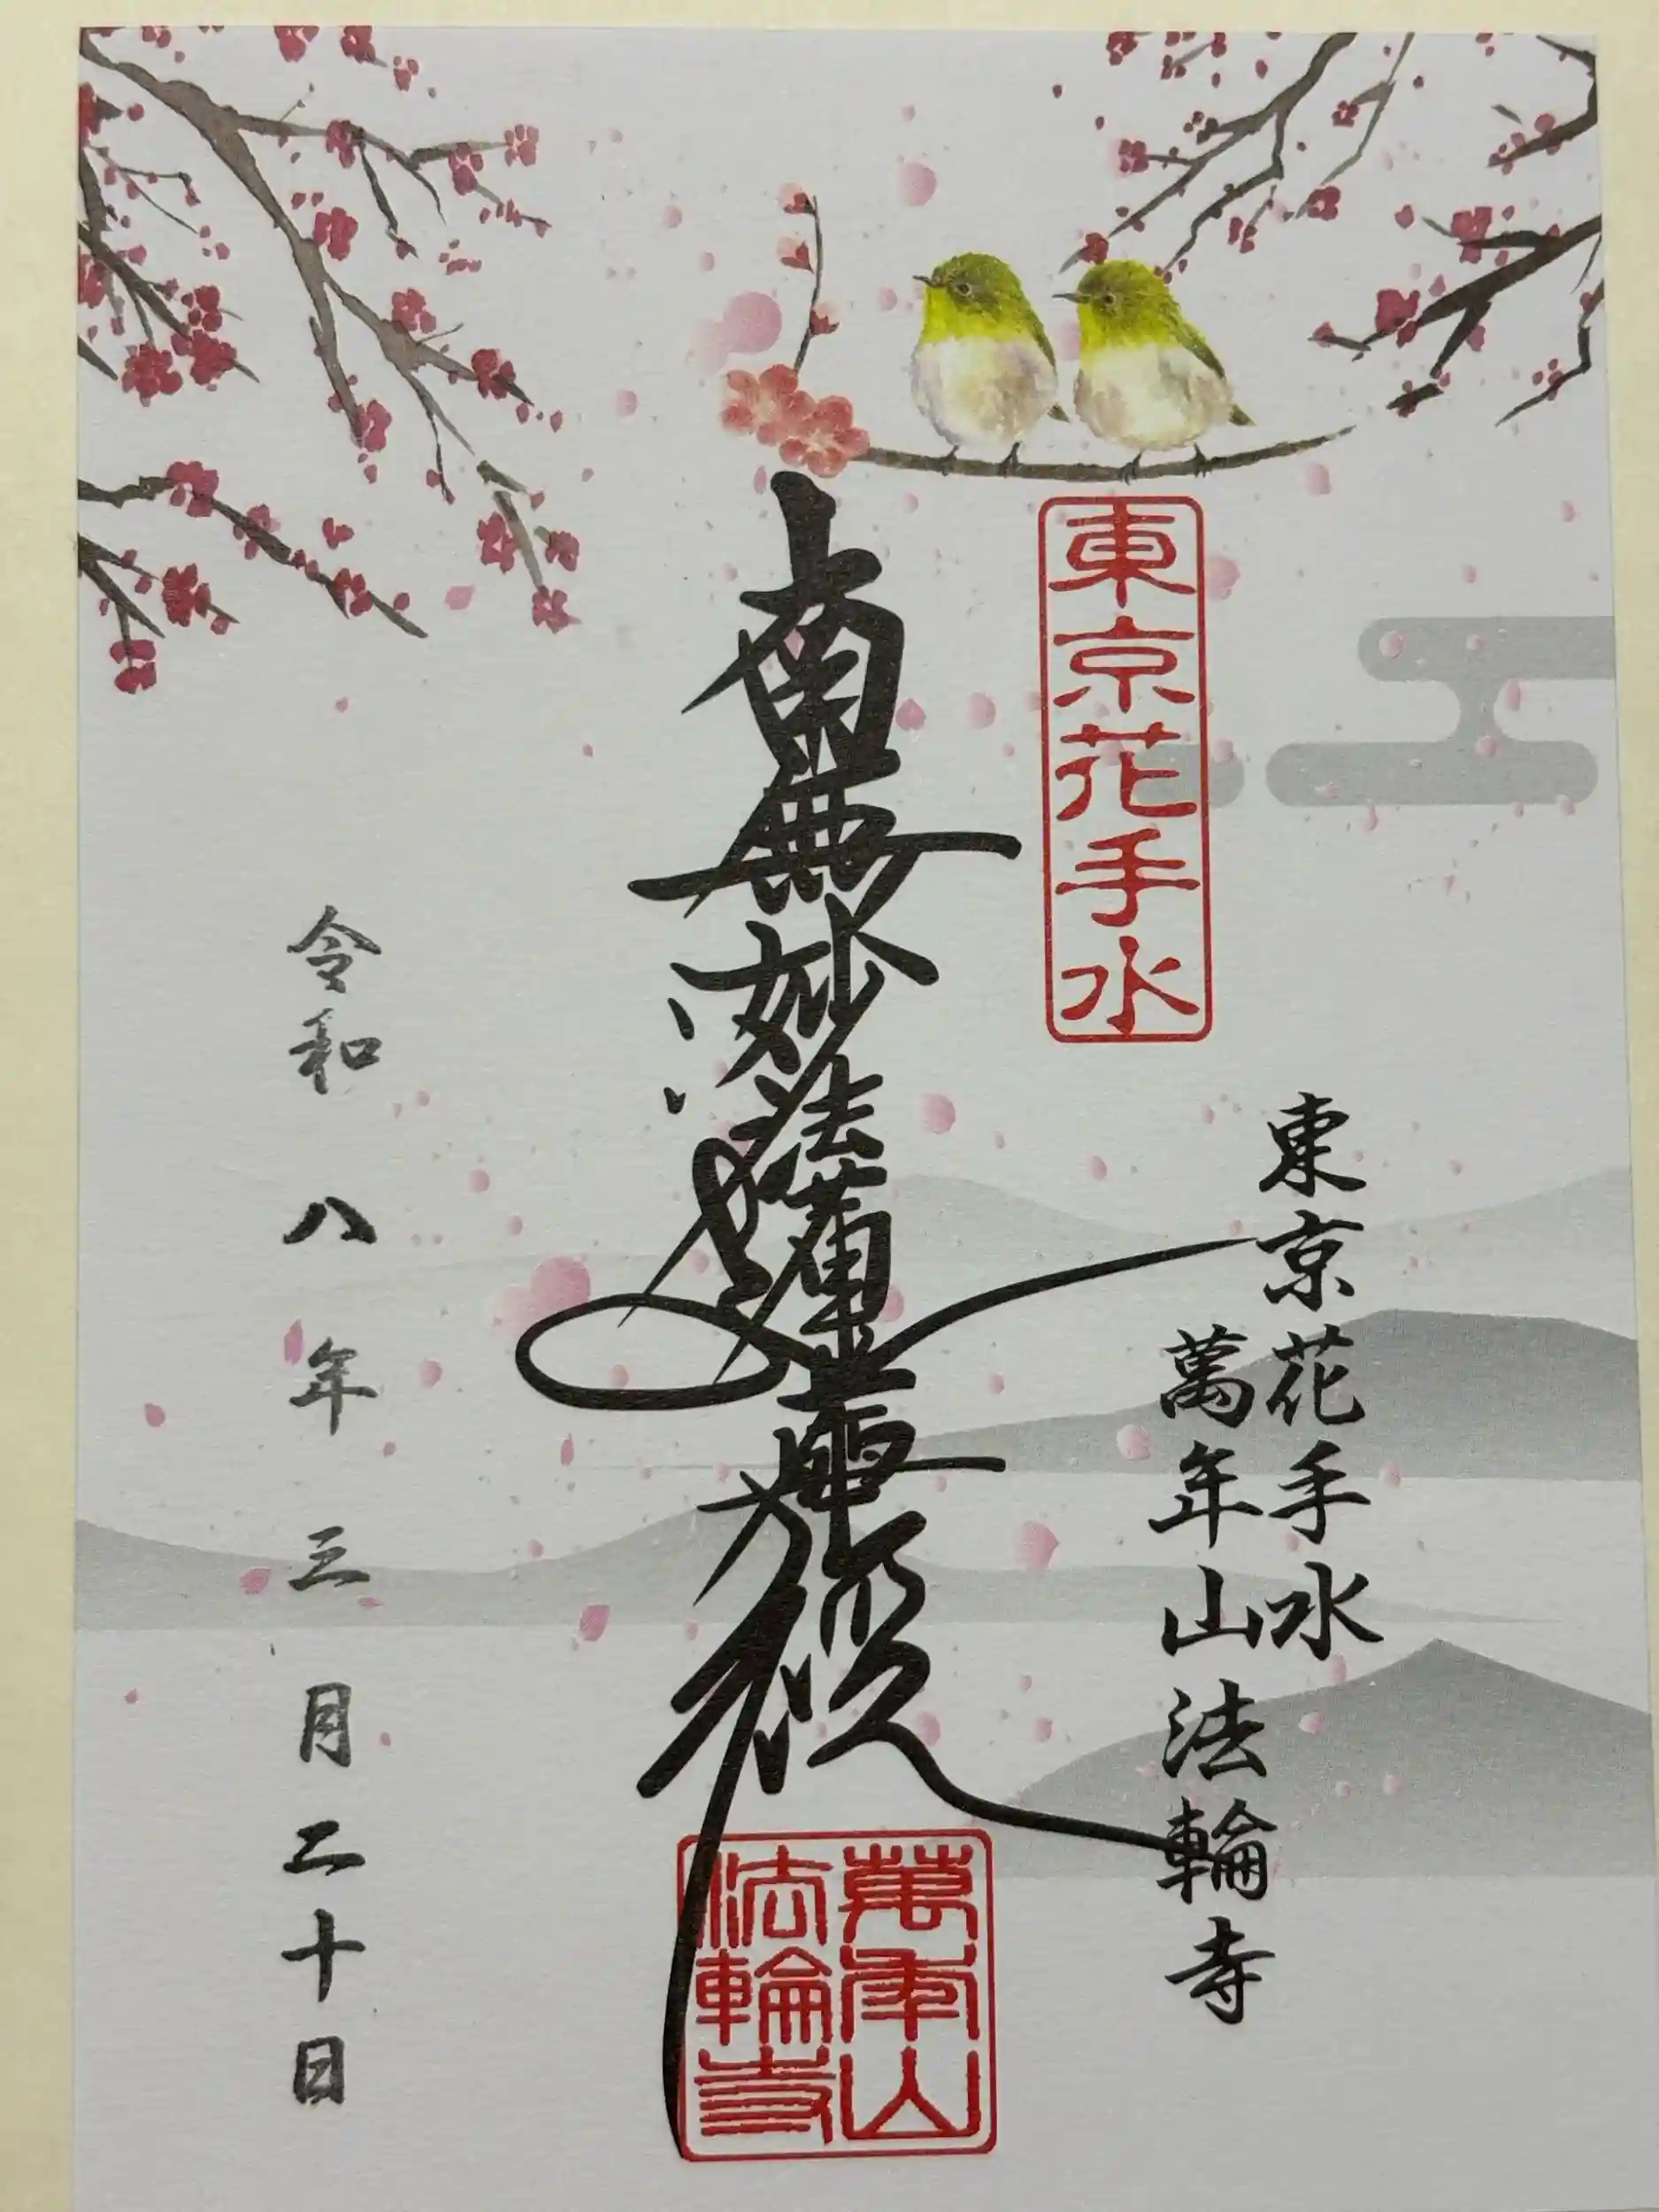 東京花手水
萬年山法輪寺
東京花手水
南無妙法蓮華經
萬年山
法輪寺
令和八年三月二十日